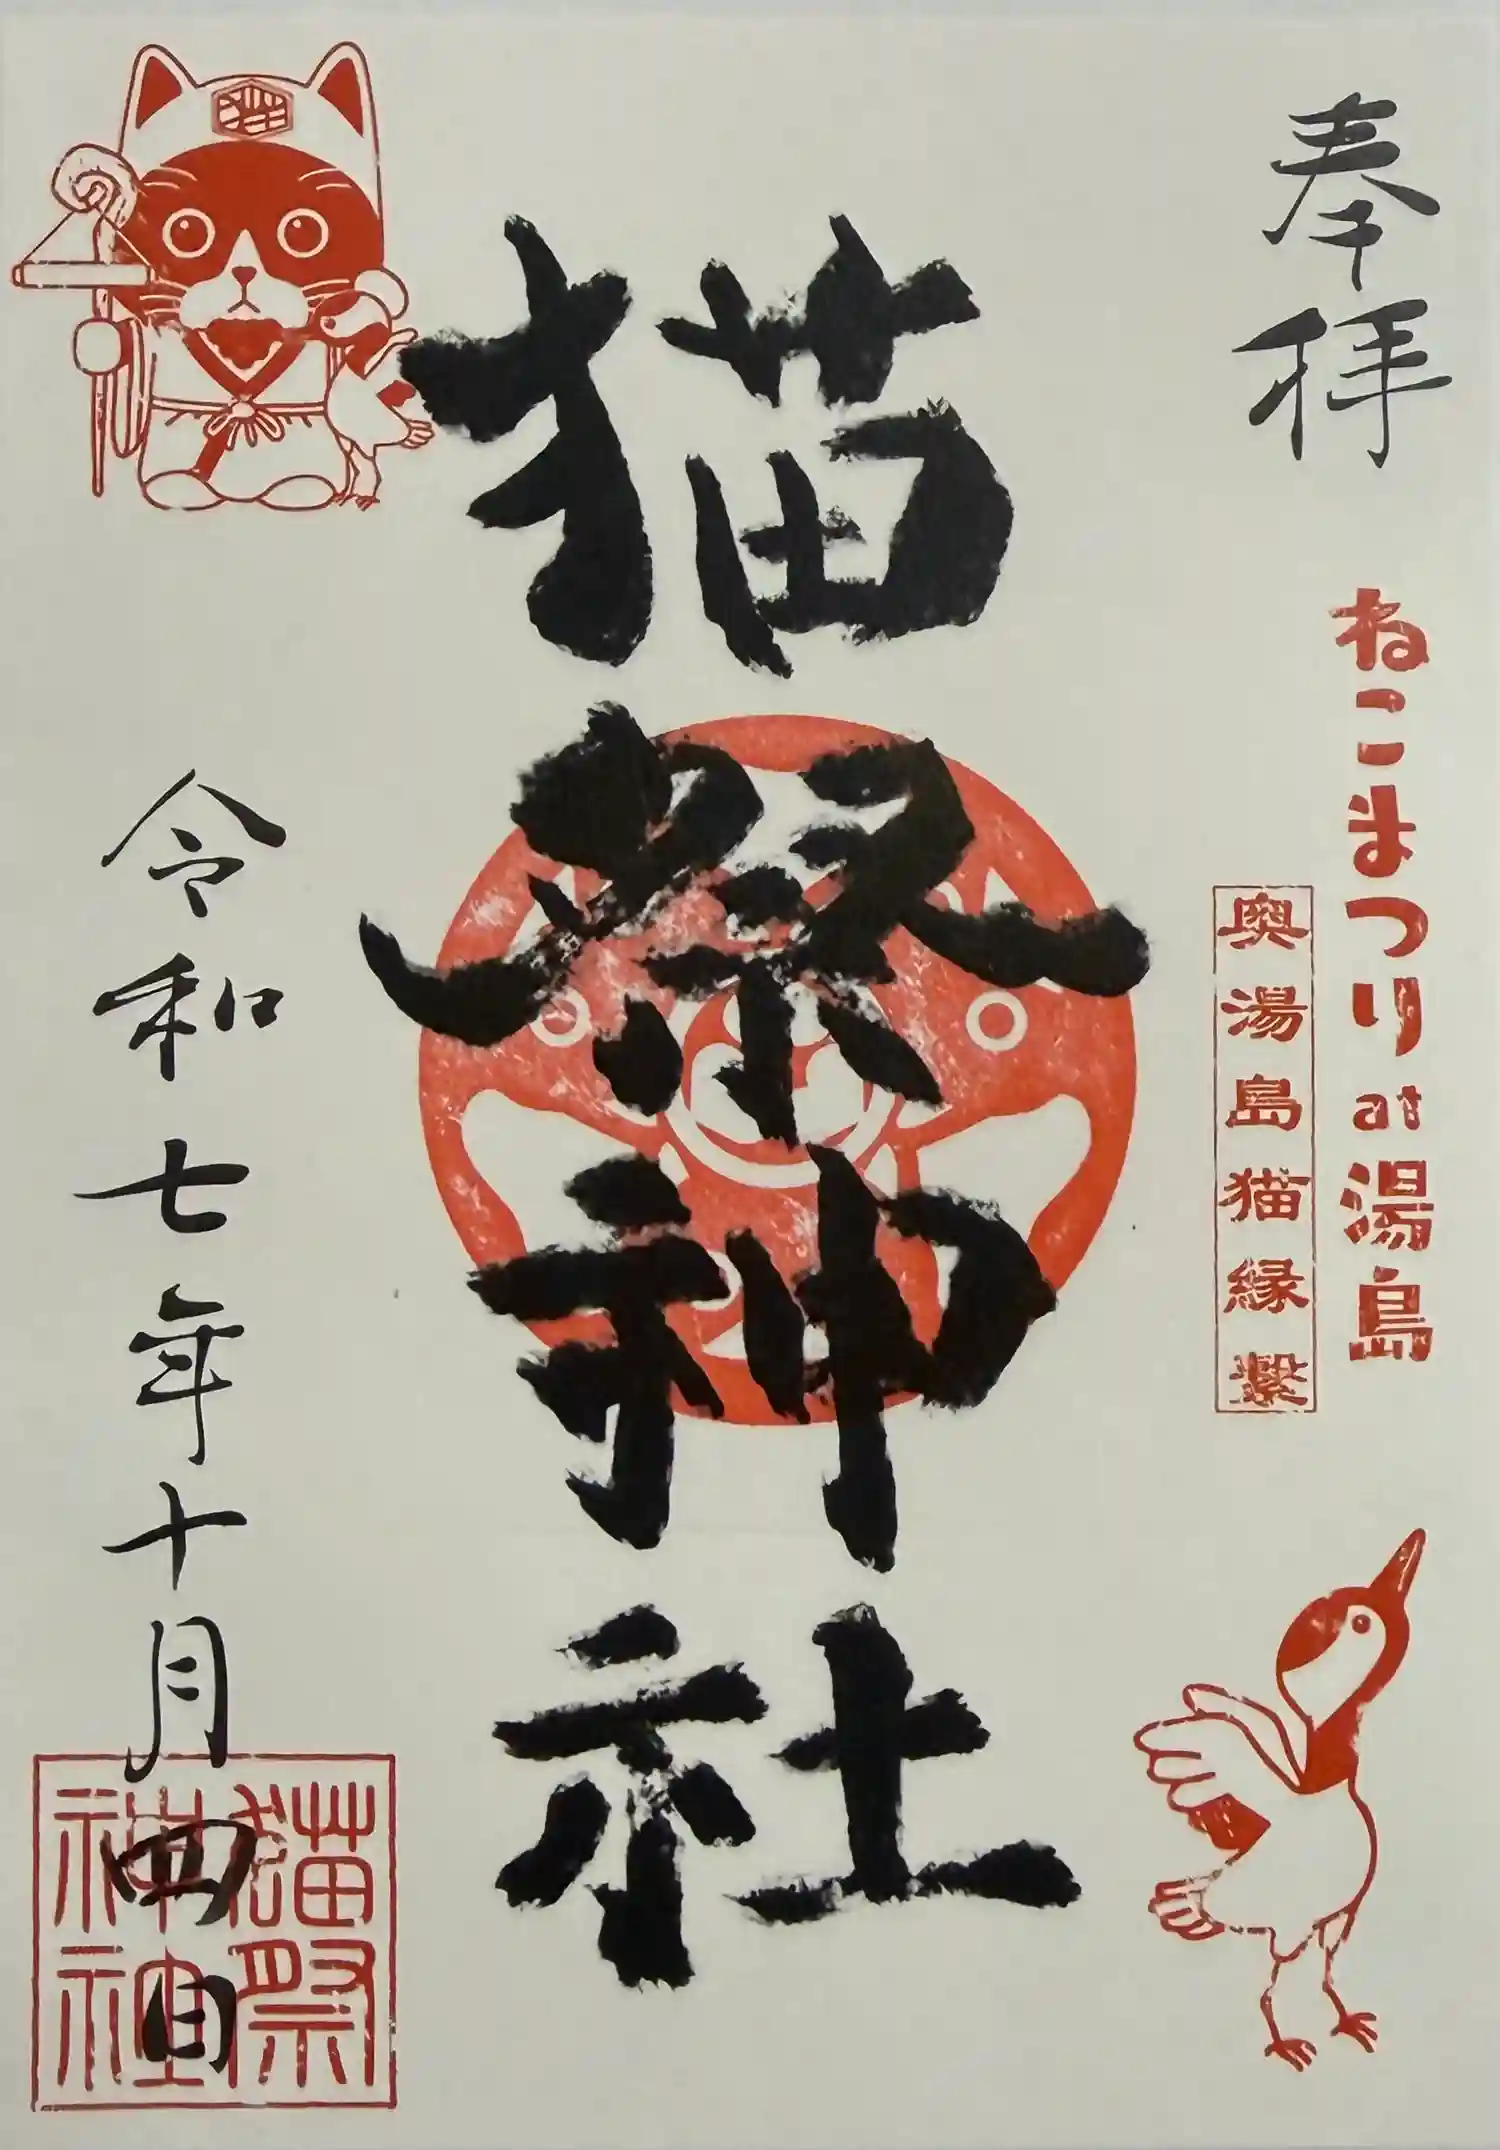 奉拝
ねこまつり at 湯島
奥湯島猫縁繋
猫祭神社
猫
令和七年十月四日
猫祭
神社